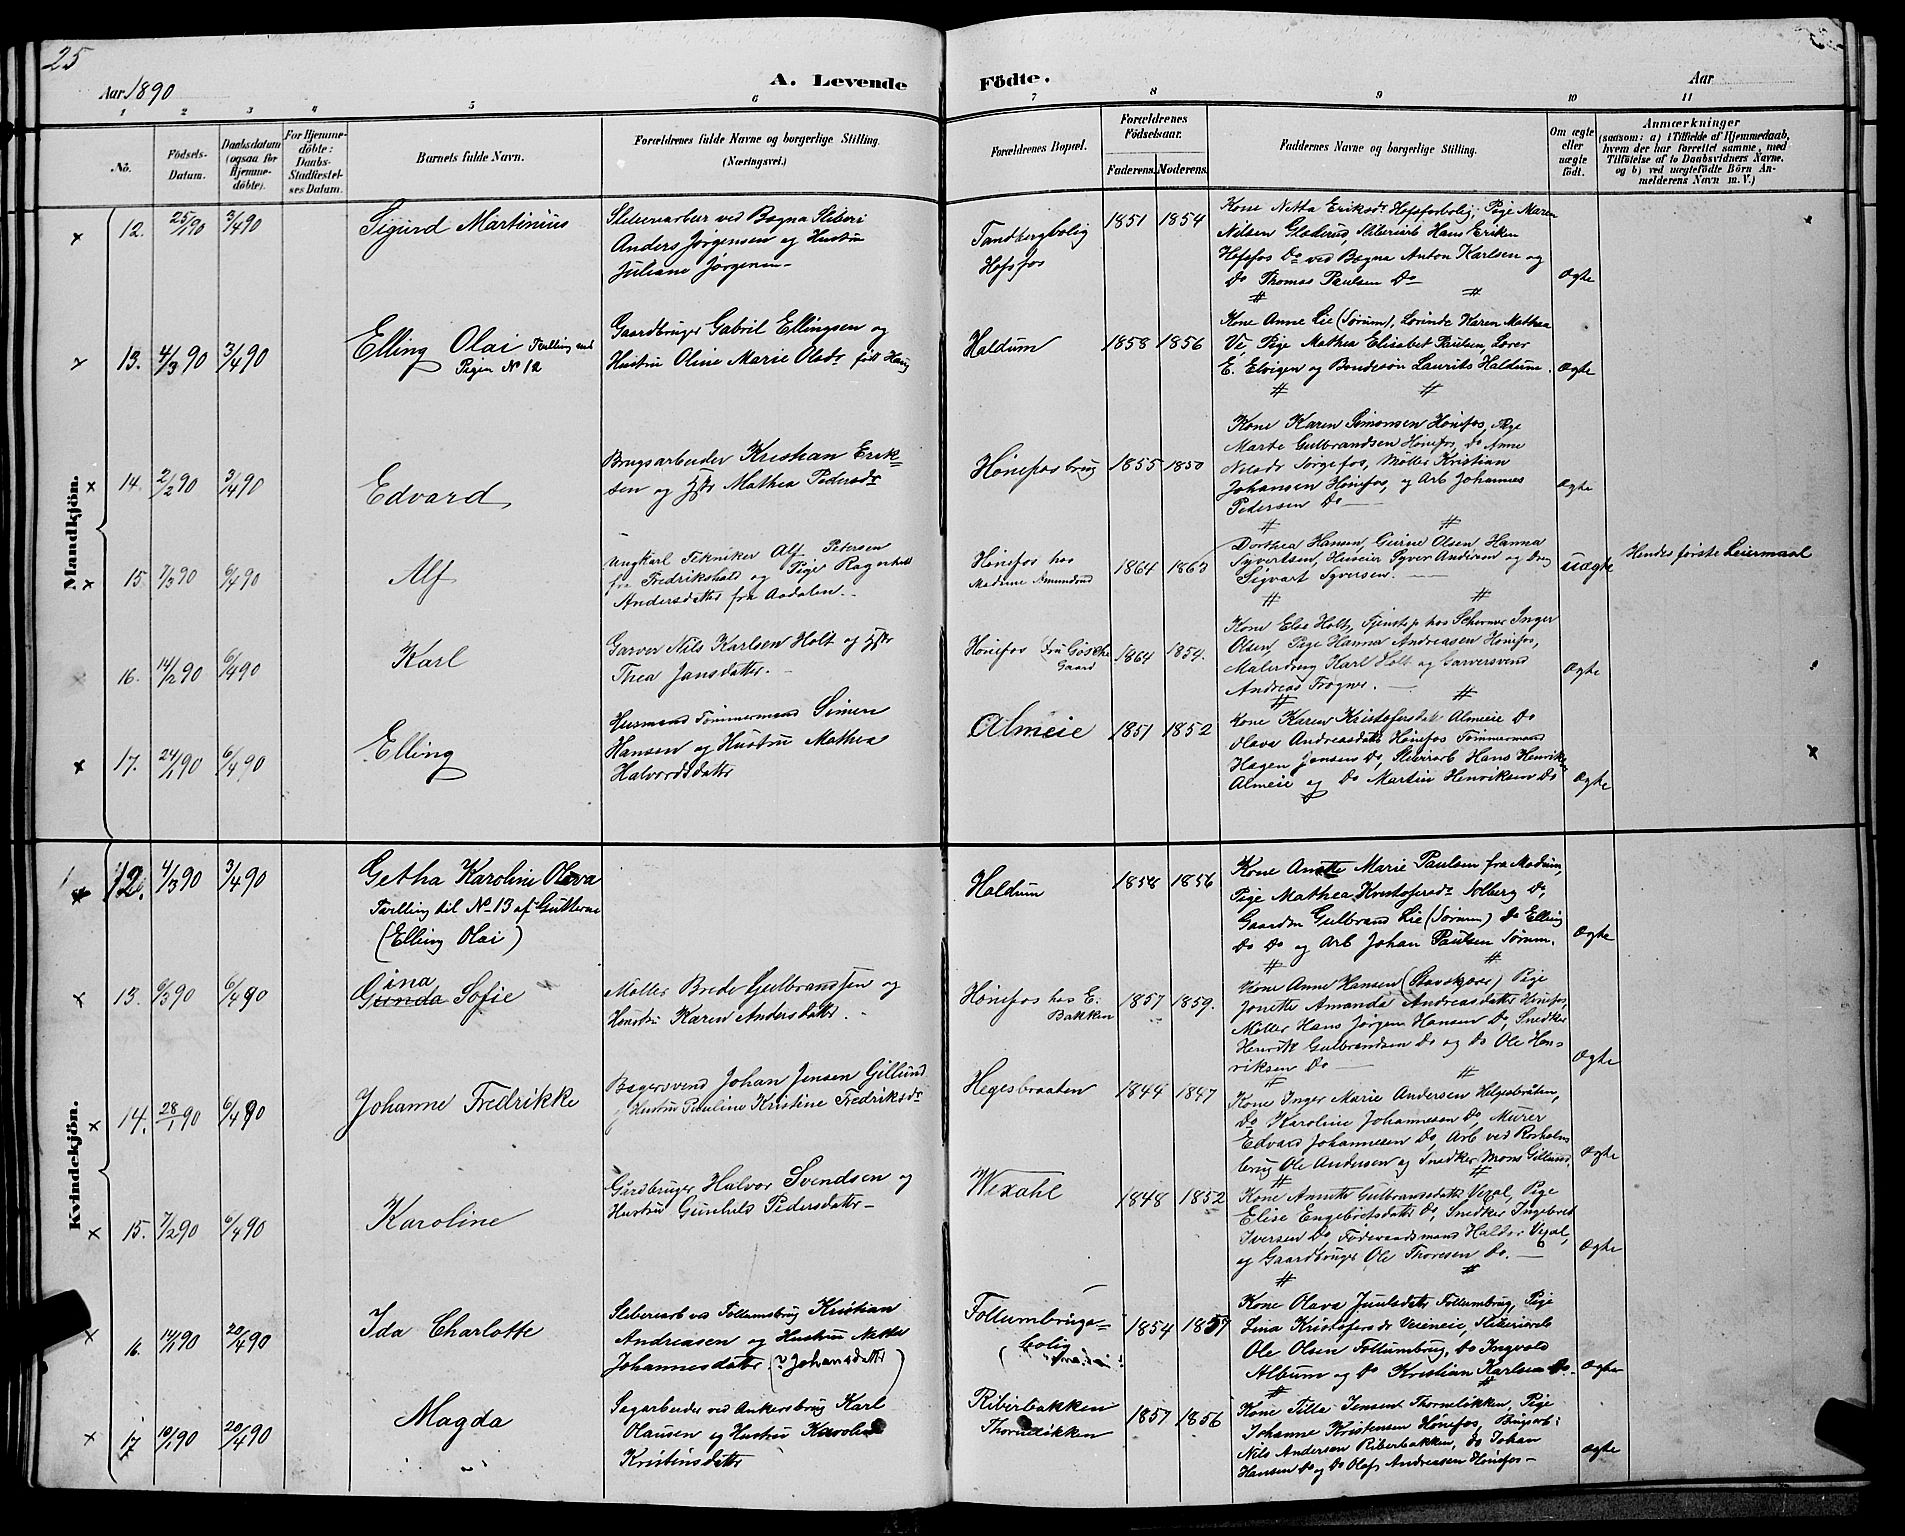 25
A. Levende Födte.
Aar 1890
Aar
1 2 3 4 5 6 7 8 9 10 11
No.
Födsels-Datum.
Daabsdatum (ogsaa for Hjemme-döbte).
For Hjemme-döbte: Daabs-Stadfæstel-ses Datum.
Barnets fulde Navn.
Forældrenes fulde Navne og borgerlige Stilling. (Næringsvei.)
Forældrenes Bopæl.
Forældrenes Födselsaar.
Faderens. Moderens.
Faddernes Navne og borgerlige Stilling.
Om ægte eller uægte födt.
Anmærkninger
(saasom: a) i Tilfælde af Hjemmedaab,
hvem der har forrettet samme, med
Tilföielse af to Daabsvidners Navne.
og b) ved uægtefödte Börn An-
melderens Navn m. V.)
Mandkjön.
12. 25/1 90 3/4 90
Sigurd Martinius
Sliberiarbeir ved Bægna Sliberi
Anders Jørgensen og Hustru
Juliane Jørgensen
Tandbergbolig
Hofsfos
1851 1854
Kone Netta Eriksdr Hofsforbolig, Pige Maren
Nilsen Gladerud, Sliberiarb Hans Eriksen
Hofsfos Do ved Bægna Anton Karlsen og
Do Thomas Paulsen Do
Ægte
13. 4/3 90 3/4 90
Elling Olai Tvilling med
Pigen No 12
Gaardbruger Gabril Ellingsen og
Hustru Oline Marie Olsdr født Haug
Haldum
1858 1856
Kone Anne Lie (Sørum), Lærinde Karen Mathea
Vi Pige Mathea Elisabet Paulsen, Lærer
E. Elvigen og Bondesøn Laurits Haldum.
Ægte
14. 2/2 90 3/4 90
Edvard
Brugsarbeider Kristian Erik-
sen og Hstr Mathea Pedersdr
Hønefosbrug
1855 1850
Kone Karen Simonsen Hønefos, Pige
Marte Gulbrandsen Hønefos, Do Anne
Nilsdr Sørgefos, Møller Kristian
Johansen Hønefos, og Arb Johannes
Pedersen Do
Ægte
15. 7/3 90 6/4 90
Alf
Ungkarl Tekniker Alf Petersen
fra Fredrikshald og Pige Ragnhild
Andersdatter fra Aadalen.
Hønefos hos
Madame Amundrud
1864 1863
Dorthea Hansen, Gurine Olsen, Hanna
Syvertsen, Syver Andersen og Dreng
Sigvart Syversen.
uægte
Hendes første Leiermaal
16. 14/2 90 6/4 90
Karl
Garver Nils Karlsen Holt og Hstr
Thea Jansdatter.
Hønefos (Fru Gaard
1864 1854.
Kone Else Holt, Tjenstep hos Schermer Inger
Olsen, Pige Hanna Andreasen Hønefos,
Malerdreng Karl Holt og Garversvend
Andreas Frogner.
Ægte
17. 24/1 90 6/4 90
Elling
Husmand Tømmermand Simen
Hansen og Hustru Mathea
Halvordsdatter
Almeie
1851 1852
Kone Karen Kristofersdatr Almeie Do
Olava Andreasdatr Hønefos Tømmermand
Hagen Jensen Do, Sliberiarb Hans Henriksen
Almeie og Do Martin Henriksen Do
Ægte
Kvindekjön.
12. 4/3 90 3/4 90
Getha Karoline Olava
Tvilling til No 13 af Gutterne
(Elling Olai)
Haldum
1858 1856
Kone Anette Marie Paulsen fra Modum,
Pige Mathea Kristofersdr Solberg Do,
Gaardm Gulbrand Lie (Sørum) Do Elling
Do Do og Arb Johan Paulsen Sørum.
Ægte
13. 6/3 90 6/4 90
Gina
Gunda Sofie
Møller Brede Gulbrandsen og
Hustru Karen Andersdatter.
Hønefos hos E.
Bakken
1857 1859.
Kone Anne Hansen (Stavskjær) Pige
Jonette Amanda Andreasdatter Hønefos,
Møller Hans Jørgen Hansen Do, Snedker
Henrik Gulbrandsen Do og Do Ole Hen-
riksen Do
Ægte
14. 28/1 90 6/4 90
Johanne Fredrikke
Bagersvend Johan Jensen Gillund
Hustru Pauline Kristine Fredriksdr
Hegesbraaten
1844 1847
Kone Inger Marie Andersen Helgesbråten,
Do Karoline Johannesen Do, Murer
Edvard Johannesen Do, Arb ved Rosholm
brug Ole Andersen og Snedker Mons Gillund,
Ægte
15. 7/2 90 6/4 90
Karoline
Gårdbruger Halvor Svendsen og
Hustru Gunhild Pedersdatter
Wexahl
1848 1852
Kone Annette Gulbransdatter Vexal, Pige
Elise Engebretsdatter Do, Snedker Ingebret
Iversen Do Føderaadsmand Haldor Vexal,
og Gaardbruger Ole Thoresen Do.
Ægte
16. 14/1 90 20/4 90
Ida Charlotte
Sliberiarb ved Follumsbrug Kristian
Andreasen og Hustru Nette
Johannesdatter (? Johansdatter)
Follumbrugs-
bolig
1854 1857
Kone Olava Juulsdatter Follumbrug, Pige
Lina Kristofersdr Veieneie, Sliberiarb
Ole Olsen Follumbrug, Do Ingvald
Album og Do Kristian Karlsen Do.
Ægte
17 10/1 90 20/4 90
Magda
Sagarbeider ved Ankersbrug Karl
Olausen og Hustru Karoline
Kristinsdatter
Riberbakken
Thorneløkken
1857 1856
Kone Tilla Jensen Thorneløkken, Pige
Johanne Kristensen Hønefos, Brugsarb:
Nils Andersen Riberbakken, Do Johan
Hansen Do og Do Olaf Andreasen Hønefos
Ægte